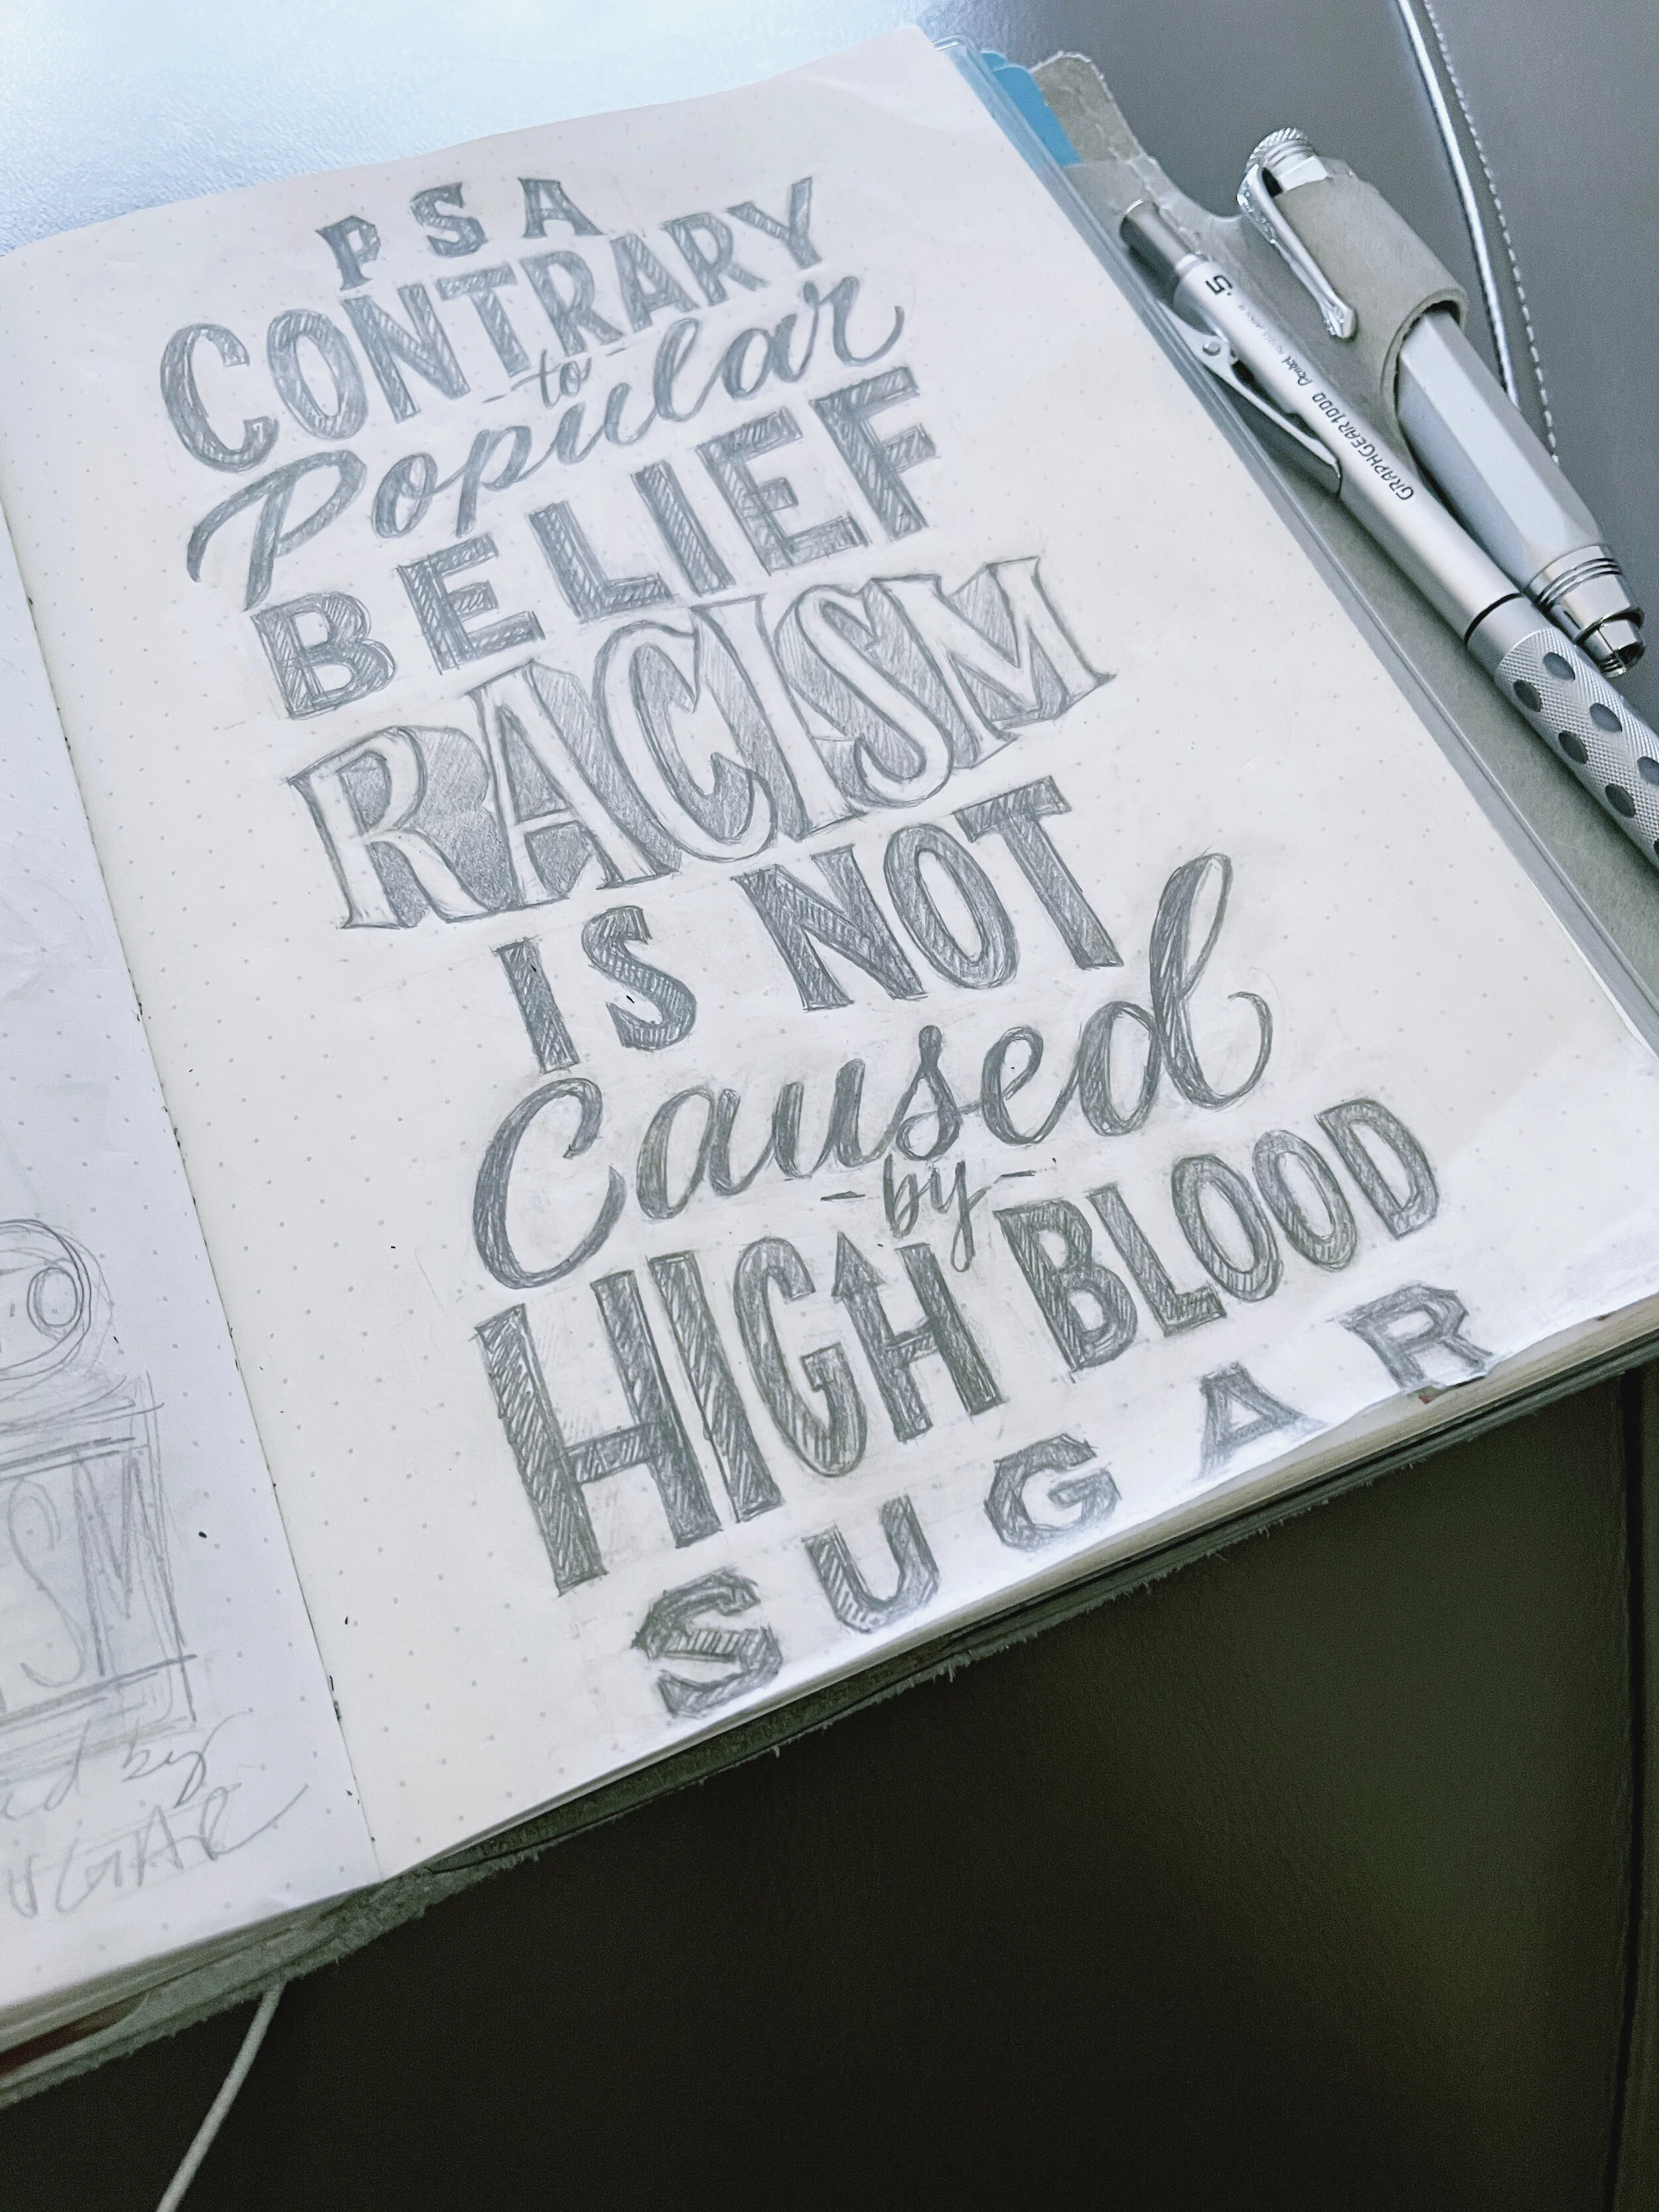 PSA
CONTRARY
to
Popular
BELIEF
RACISM
IS NOT
Caused
by
HIGH BLOOD
SUGAR
SM
ed by
UGAR
.5
Pentel
GRAPHGEAR 1000